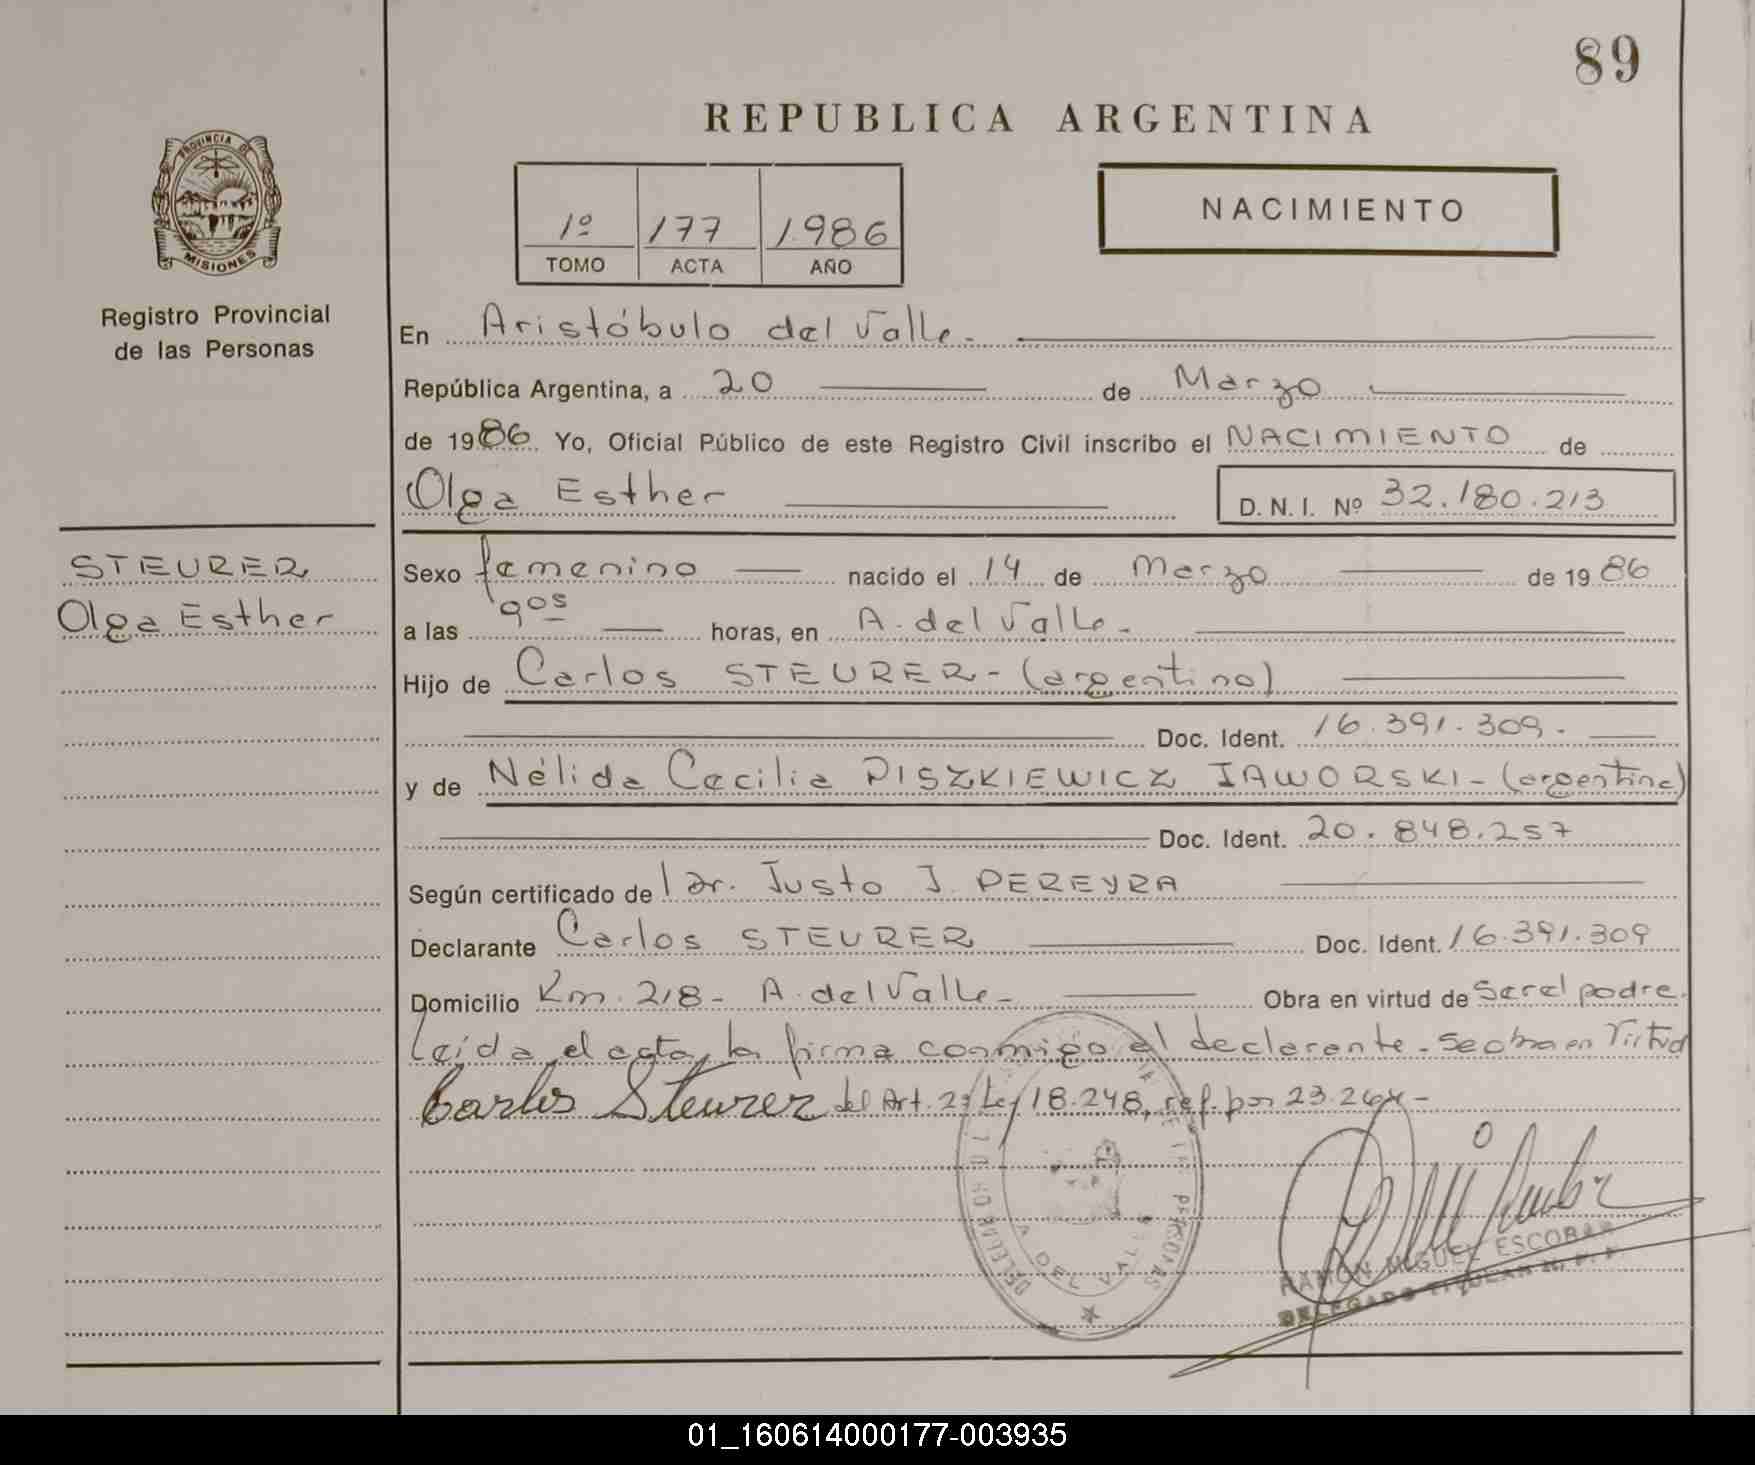 89
REPUBLICA ARGENTINA
PROVINCIA DE
MISIONES
Registro Provincial
de las Personas
1º 177 1986
TOMO ACTA AÑO
NACIMIENTO
En Aristóbulo del Valle.
República Argentina, a 20 de Marzo
de 1986. Yo, Oficial Público de este Registro Civil inscribo el NACIMIENTO de
Olga Esther D. N. I. Nº 32.180.213
STEURER
Olga Esther
Sexo femenino nacido el 14 de Marzo de 1986
a las 9os horas, en A. del Valle.
Hijo de Carlos STEURER - (argentino)
Doc. Ident. 16.391.309.
y de Nélida Cecilia PISZKIEWICZ JAWORSKI - (argentina)
Doc. Ident. 20.848.257
Según certificado de Dr. Justo J. PEREYRA
Declarante Carlos STEURER Doc. Ident. 16.391.309
Domicilio Km. 218 - A. del Valle - Obra en virtud de ser el padre.
Leída el acta, la firma conmigo el declarante - Se obra en Virtud
Carlos Steurer del Art. 2º Ley 18.248, ref. por 23.264 -
DEL VALLE
PERSONAS
RAMÓN MIGUEL ESCOBAR
DELEGADO TITULAR R. P. P.
01_160614000177-003935